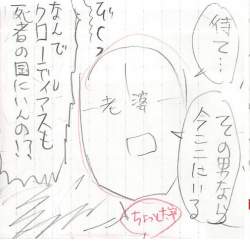 待て…
その男なら
今ここにいる
老婆
びくっ
なんで
クローディアスも
死者の国にいんの!?